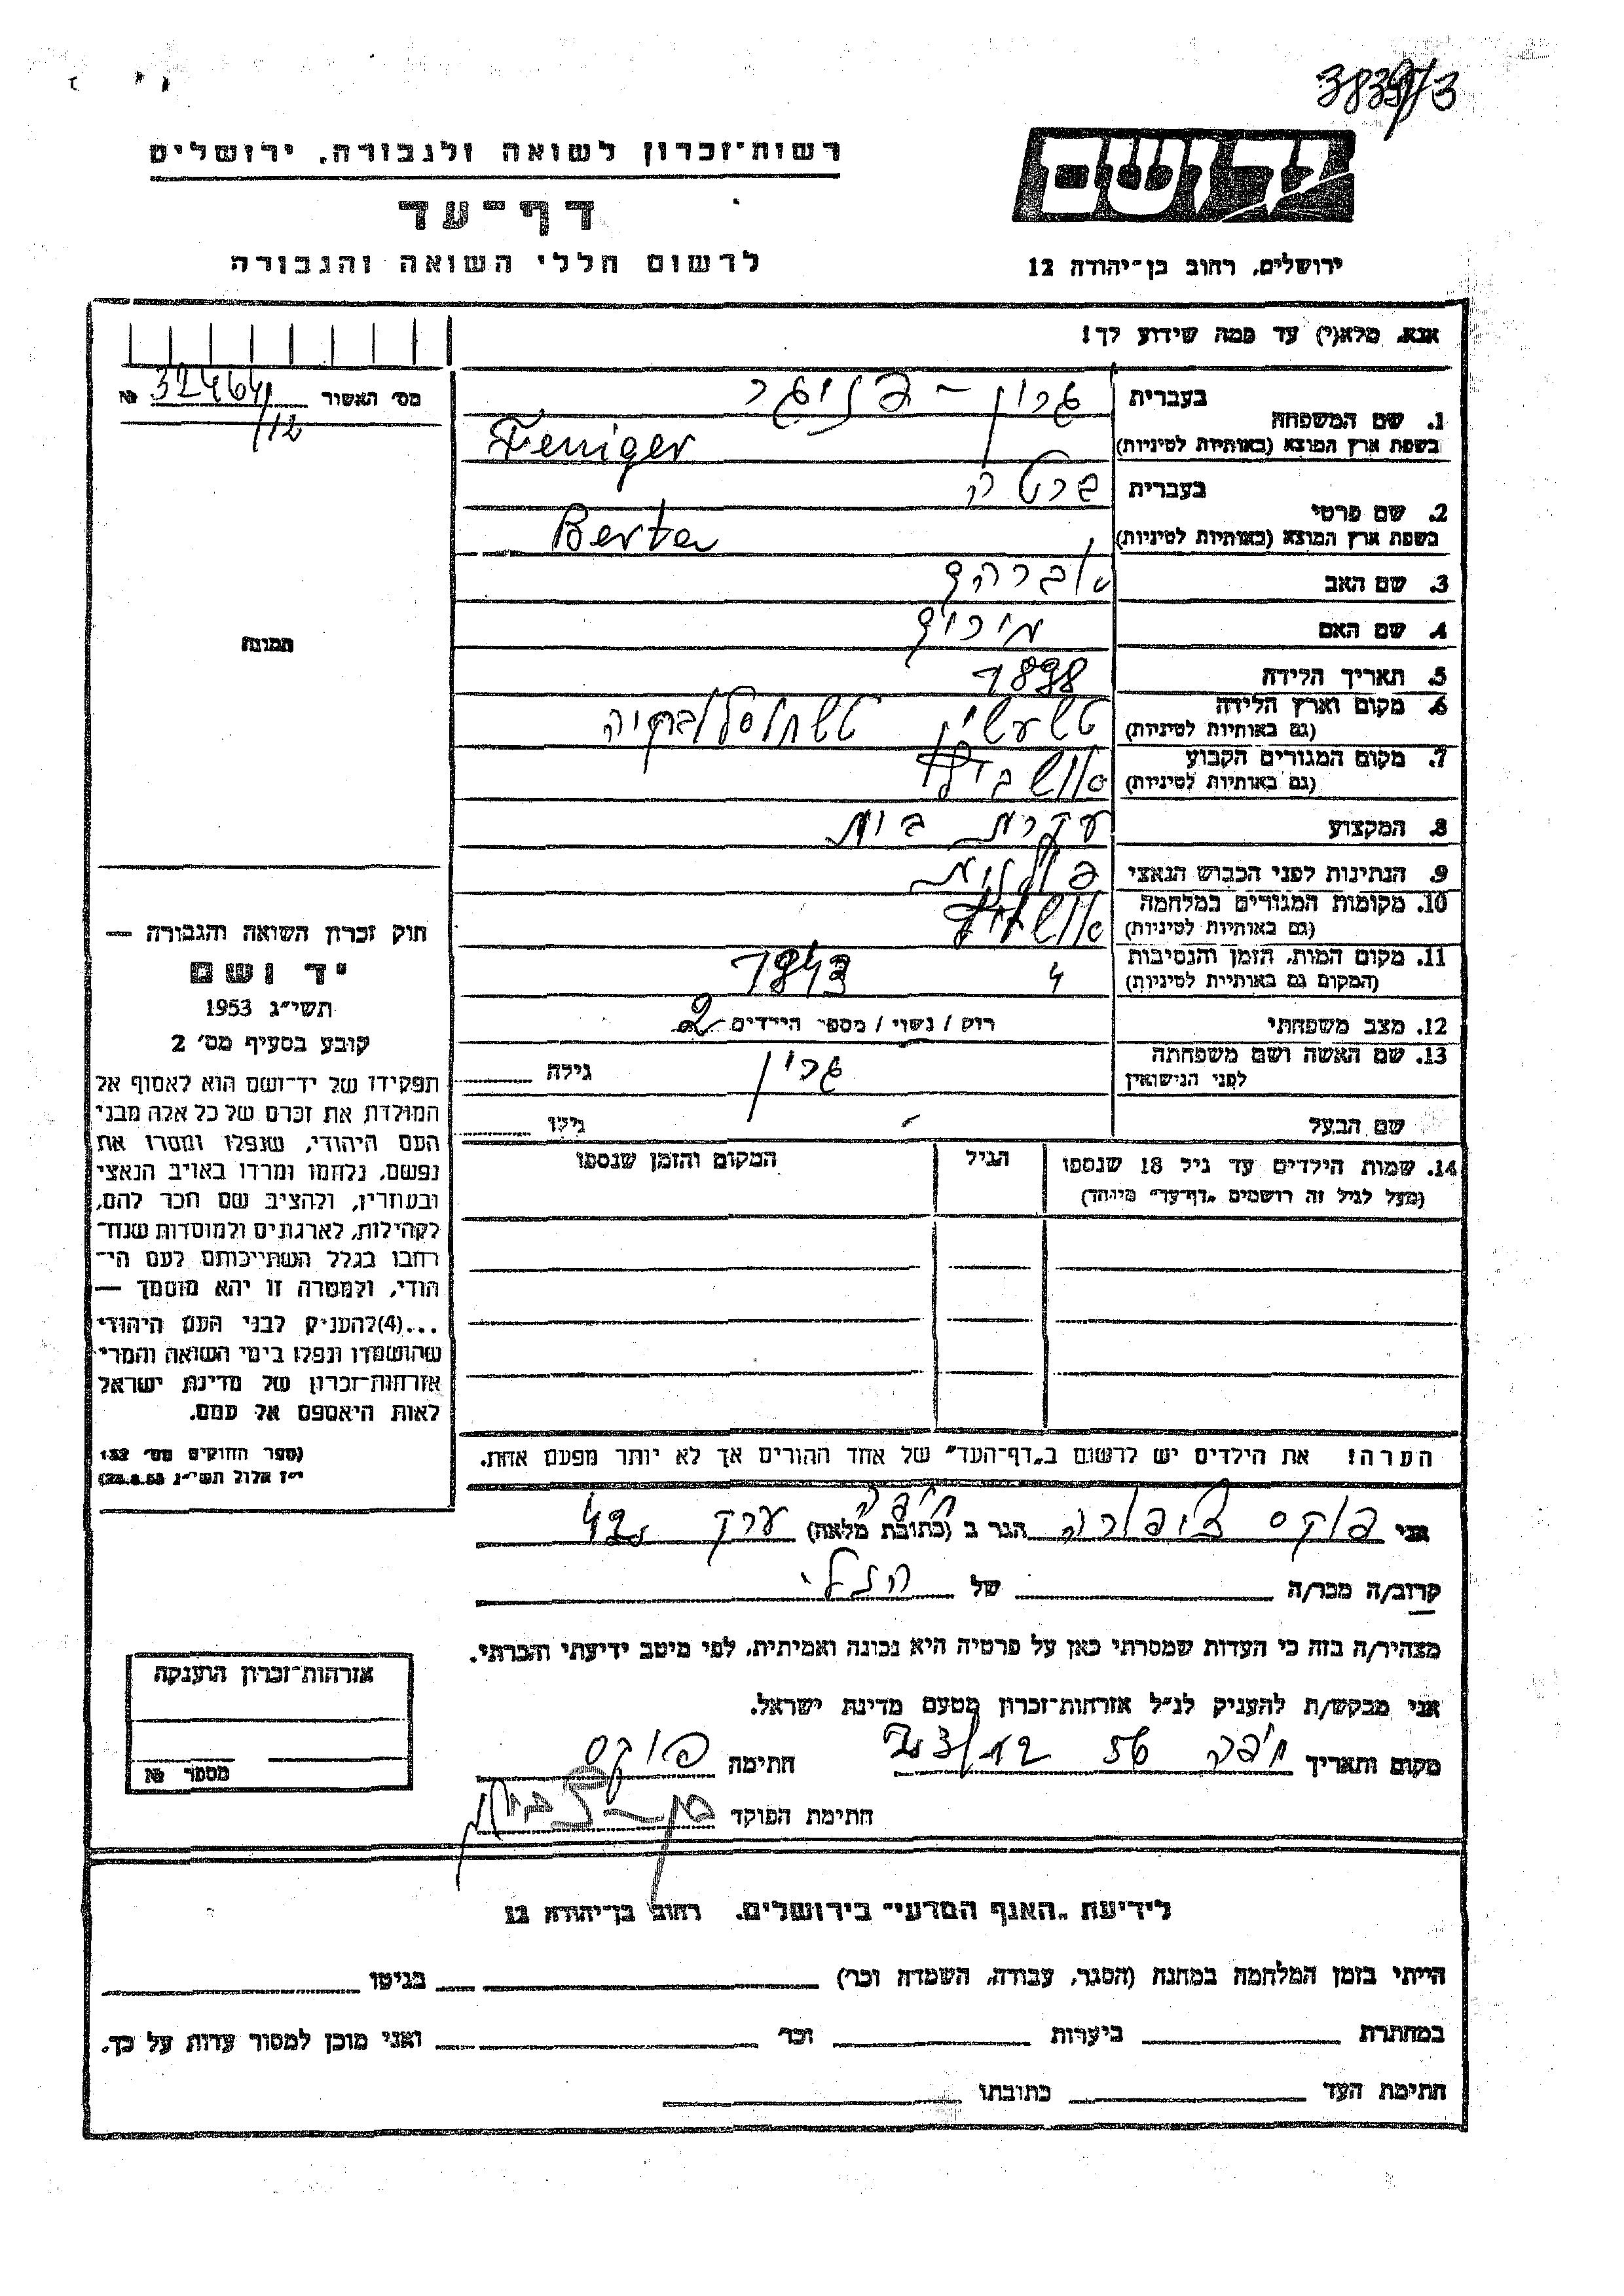 3839/3
רשות־זכרון לשואה ולגבורה, ירושלים
דף־עד
לרשום חללי השואה והגבורה
יד ושם
ירושלים, רחוב בן־יהודה 12
אנא, מלא(י) עד כמה שידוע לך!
מס׳ האשור 32464/12 №
תמונה
1. שם המשפחה
בעברית
בשפת ארץ המוצא (באותיות לטיניות) Feniger
2. שם פרטי
בעברית ברטה
בשפת ארץ המוצא (באותיות לטיניות) Berta
3. שם האב אברהם
4. שם האם מירים
5. תאריך הלידה 1898
6. מקום וארץ הלידה
(גם באותיות לטיניות)
7. מקום המגורים הקבוע
(גם באותיות לטיניות)
8. המקצוע עקרת בית
9. הנתינות לפני הכבוש הנאצי פולנית
10. מקומות המגורים במלחמה
(גם באותיות לטיניות)
11. מקום המות, הזמן והנסיבות 1943
(המקום גם באותיות לטיניות)
12. מצב משפחתי רוק / נשוי / מספר הילדים 2
13. שם האשה ושם משפחתה
לפני הנישואין
גילה
שם הבעל גילו
14. שמות הילדים עד גיל 18 שנספו הגיל המקום והזמן שנספו
(מעל לגיל זה רושמים „דף־עד״ מיוחד)
הערה! את הילדים יש לרשום ב„דף־העד״ של אחד ההורים אך לא יותר מפעם אחת.
חוק זכרון השואה והגבורה —
יד ושם
תשי״ג 1953
קובע בסעיף מס׳ 2
תפקידו של יד־ושם הוא לאסוף אל
המולדת את זכרם של כל אלה מבני
העם היהודי, שנפלו ומסרו את
נפשם, נלחמו ומרדו באויב הנאצי
ובעוזריו, ולהציב שם וזכר להם,
לקהילות, לארגונים ולמוסדות שנח־
רבו בגלל השתייכותם לעם הי־
הודי, ולמטרה זו יהא מוסמך —
...(4)להעניק לבני העם היהודי
שהושמדו ונפלו בימי השואה והמרי
אזרחות־זכרון של מדינת ישראל
לאות היאספם אל עמם.
(ספר החוקים מס׳ 132
י״ז אלול תשי״ג 28.8.53)
אני פוקס ציפורה הגר ב (כתובת מלאה) חיפה 42
קרוב/ה מכר/ה של
מצהיר/ה בזה כי העדות שמסרתי כאן על פרטיה היא נכונה ואמיתית, לפי מיטב ידיעתי והכרתי.
אני מבקש/ת להעניק לנ״ל אזרחות־זכרון מטעם מדינת ישראל.
מקום ותאריך חיפה 56 23/12 חתימה פוקס
חתימת הפוקד
אזרחות־זכרון הוענקה
מספר №
לידיעת „האגף המדעי״ בירושלים, רחוב בן־יהודה 12
הייתי בזמן המלחמה במחנה (הסגר, עבודה, השמדה וכו׳) בגיטו
במחתרת ביערות וכו׳ ואני מוכן למסור עדות על כך.
חתימת העד כתובתו